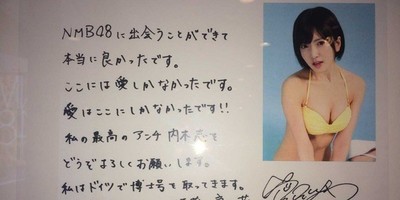 NMB48に出会うことができて
本当に良かったです。
ここには愛しかなかったです。
愛はここにしかなかったです!!
私の最高のアンチ 内木志を
どうぞよろしくお願いします。
私はドイツで博士号を取ってきます。